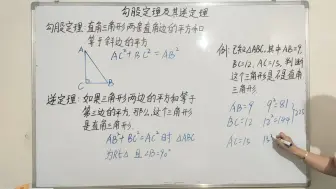 勾股定理及其逆定理
勾股定理:直角三角形两条直角边的平方和
等于斜边的平方
AC²+BC²=AB²
A
C
B
逆定理:如果三角形两边的平方和等于
第三边的平方,那么,这个三角形
是直角三角形.
AB²+BC²=AC²时 △ABC
为Rt△ 且∠B=90°
例:已知△ABC,其中AB=9,
BC=12,AC=15,判断
这个三角形是不是直角
三角形.
AB=9 9²=81
BC=12 12²=144
AC=15